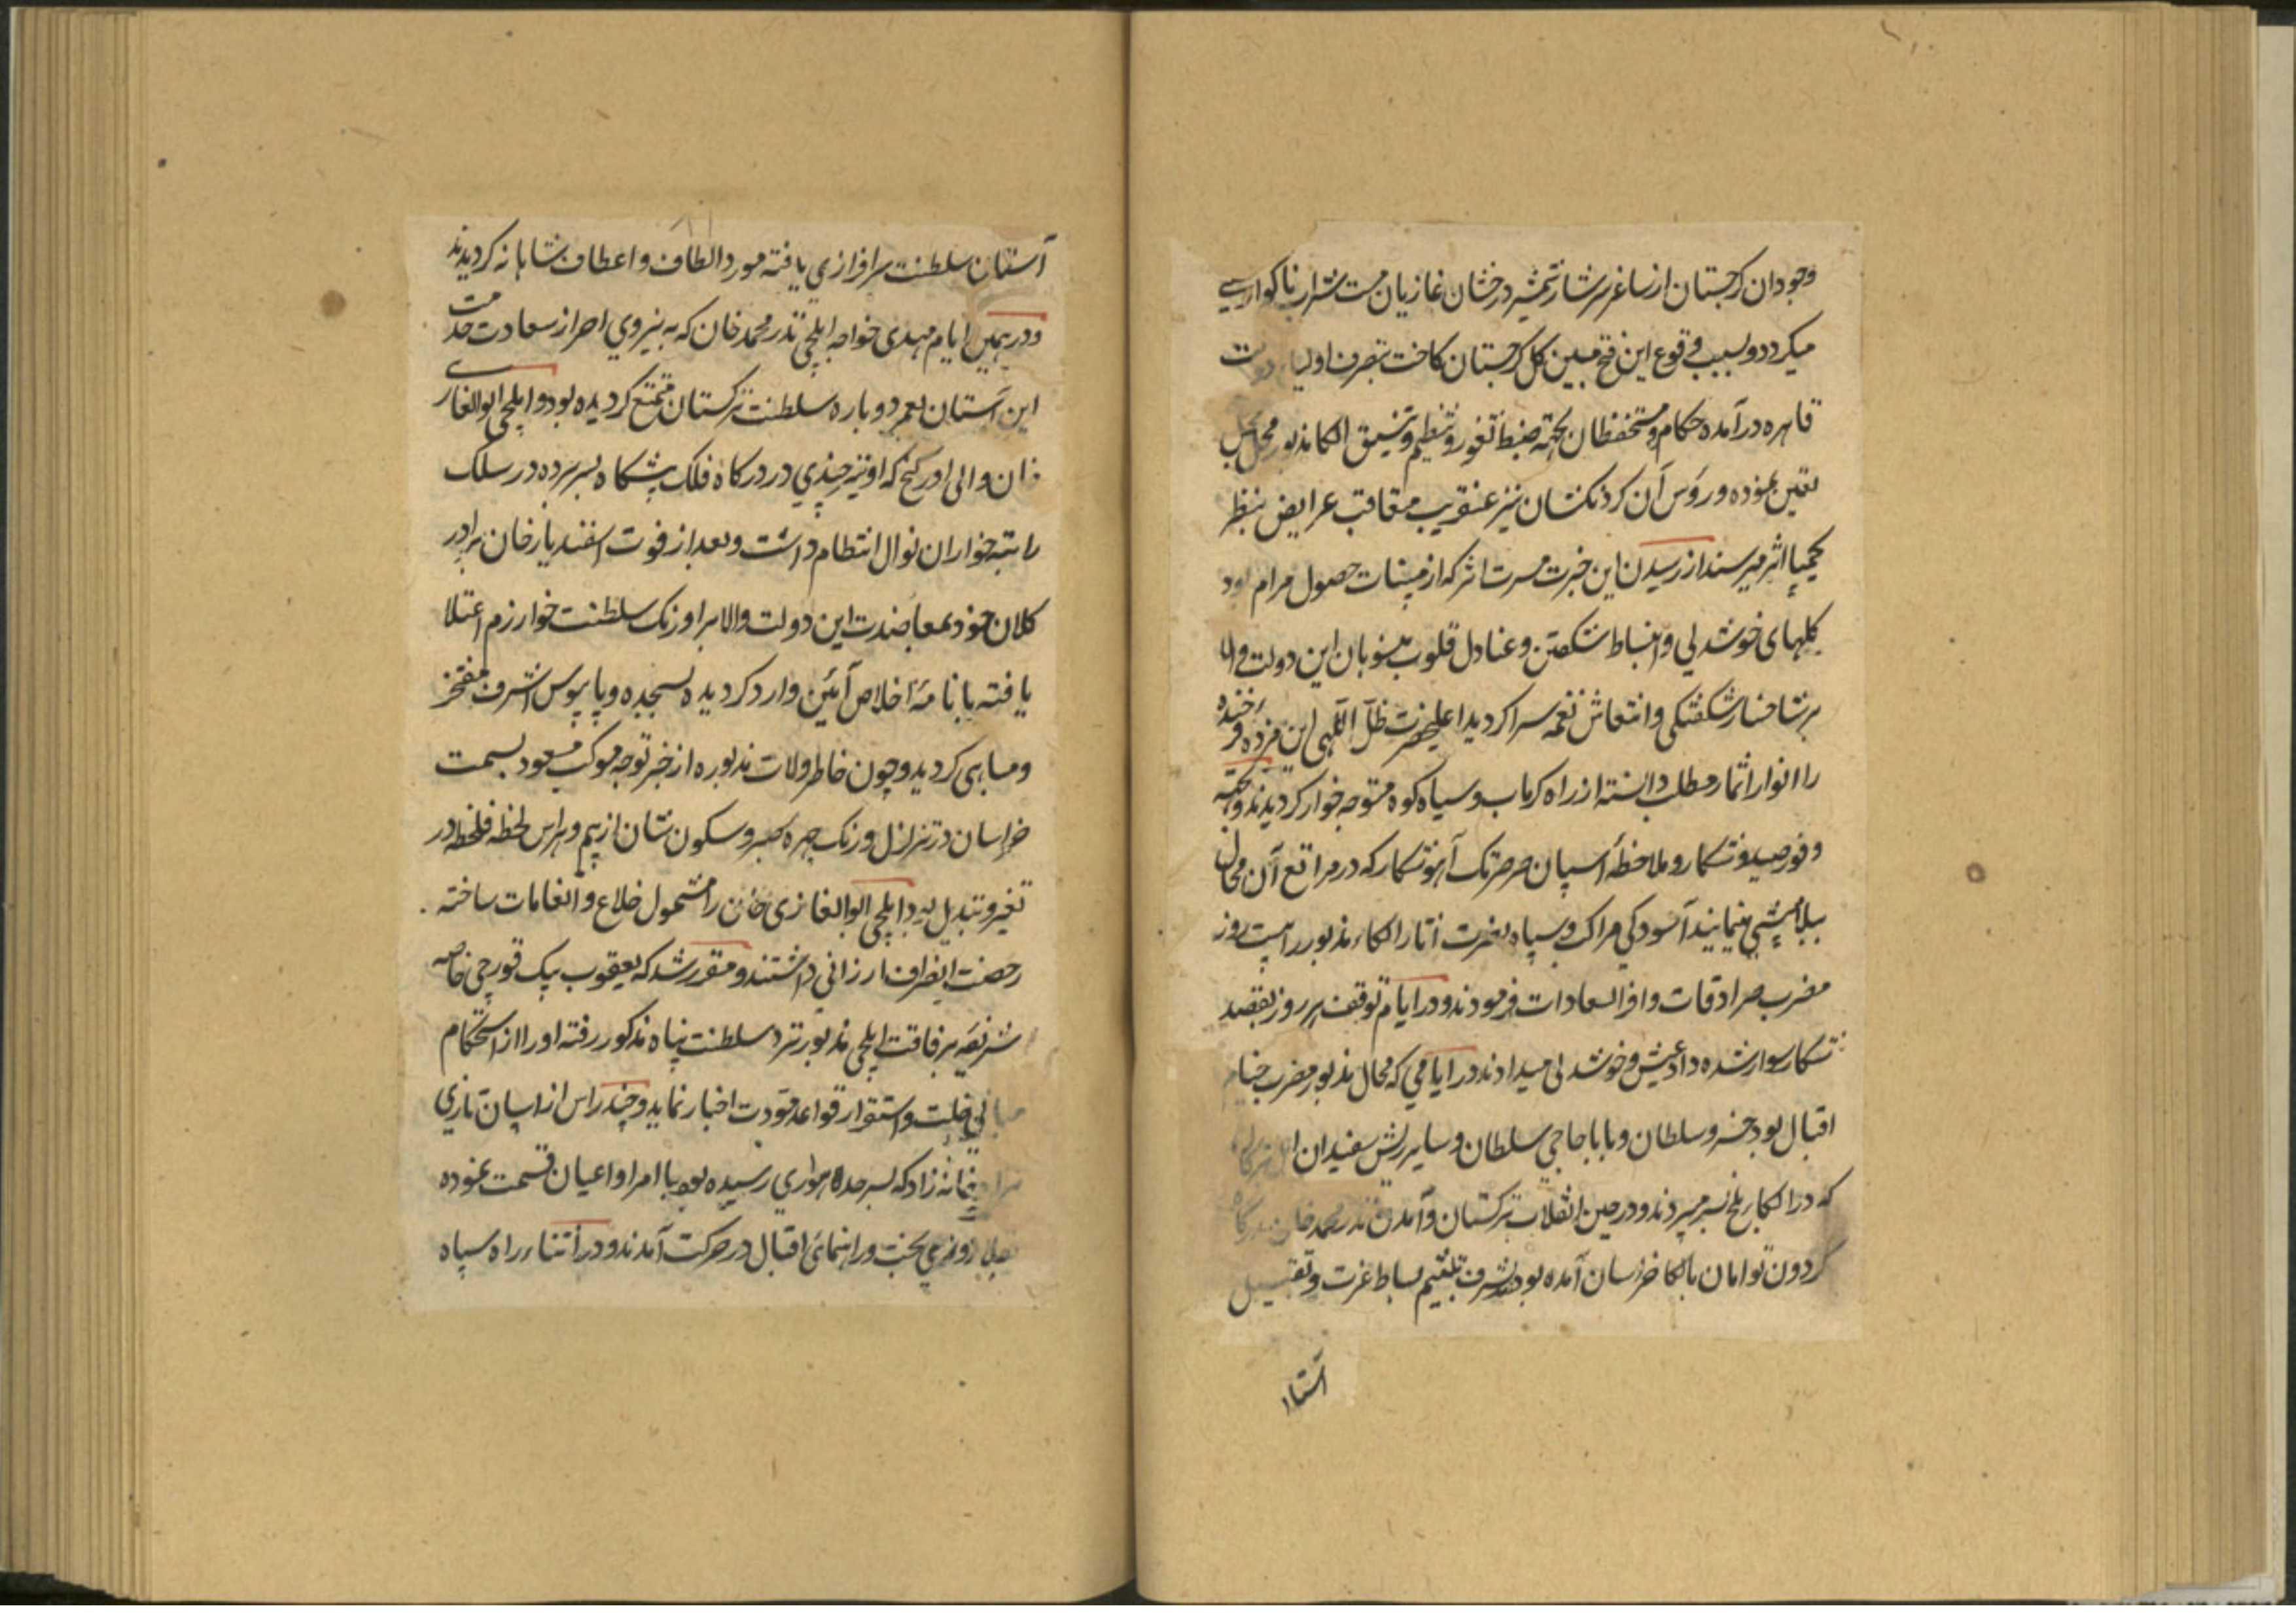 وجودان کرجستان از ساغر سرشار شمشیر درخشان غازیان مست شراب ناکواری
میکردد و بسبب وقوع این فتح مبین کل کرجستان کاخت بتصرف اولیاء دولت
قاهره درآمده حکام و مستحفظان بجهة ضبط ثغور و تنظیم و تنسیق الکا مذبور محل بمحل
تعیین نموده و روس آن کردنکشان نیز عنقریب متعاقب عرایض بنظر
کیمیا اثر میرسند از رسیدن این خبرت مسرت اثر که از مبینات حصول مرام بود
کلهای خوشدلی و انبساط شکفتن و عنادل قلوب منسوبان این دولت والا
بر شاخسار شکفتکی و انتعاش نغمه سرا کردید اعلیحضرت ظل اللهی این مژده فرخنده
را انوار اثمار مطلب دانسته از راه کرماب و سیاه کوه متوجه خوار کردیدند و بجهة
وفور صید و شکار و ملاحظهٔ اسپان صرصرتک آهو شکار که در مراتع آن محال
ییلامیشی مینمایند آسودکی مراکب و سپاه نصرت آثار الکاء مذبور را بیست روز
مضرب سرادقات وافر السعادات فرمودند و در ایام توقف هر روز بقصد
شکار سوار شده داد عیش و خوشدلی میدادند در ایامی که محال مذبور مضرب خیام
اقبال بود خسرو سلطان و بابا حاجی سلطان و سایر ریش سفیدان
که در الکاء بلخ بسر میبردند و در حین انقلاب ترکستان و آمدن ندر محمد خان بدرکاه
کردون توامان بالکا خراسان آمده بودند بشرف تلثیم بساط عزت و تقبیل
آستان
آستان سلطنت سرافرازی یافته مورد الطاف و اعطاف شاهانه کردیدند
و در همین ایام مهدی خواجه ایلچی ندر محمد خان که به نیروی احراز سعادت خدمت
این آستان بعمر دوباره سلطنت ترکستان متمتع کردیده بود و ایلچی ابوالغازی
خان والی اورکنج که او نیز چندی در درکاه فلک پیشکاه بسر برده در سلک
راتبه خواران نوال انتظام داشت و بعد از فوت اسفندیار خان برادر
کلان خود بمعاضدت این دولت والا بر اورنک سلطنت خوارزم اعتلا
یافته با نامهٔ اخلاص آئین وارد کردیده بسجده و پابوس اشرف مفتخر
و مباهی کردید و چون خاطر ولات مذبوره از خبر توجه موکب مسعود بسمت
خراسان در تزلزل و رنک چهره صبر و سکون شان از بیم و هراس لحظه فلحظه در
تغیر و تبدیل بود ایلچی ابوالغازی خان را مشمول خلاع و انعامات ساخته
رخصت انصراف ارزانی داشتند و مقرر شد که یعقوب بیک قورچی خاصه
شریفه برفاقت ایلچی مذبور نزد سلطنت پناه مذکور رفته او را از استحکام
مبانی خلت و استقرار قواعد مودت اخبار نماید و چند راس از اسپان تازی
نژاد خانه زاد که بسر حد سواری رسیده بود با امرا و اعیان قسمت نموده
بخت و راهنمائی اقبال در حرکت آمدند و در اثناء راه سپاه